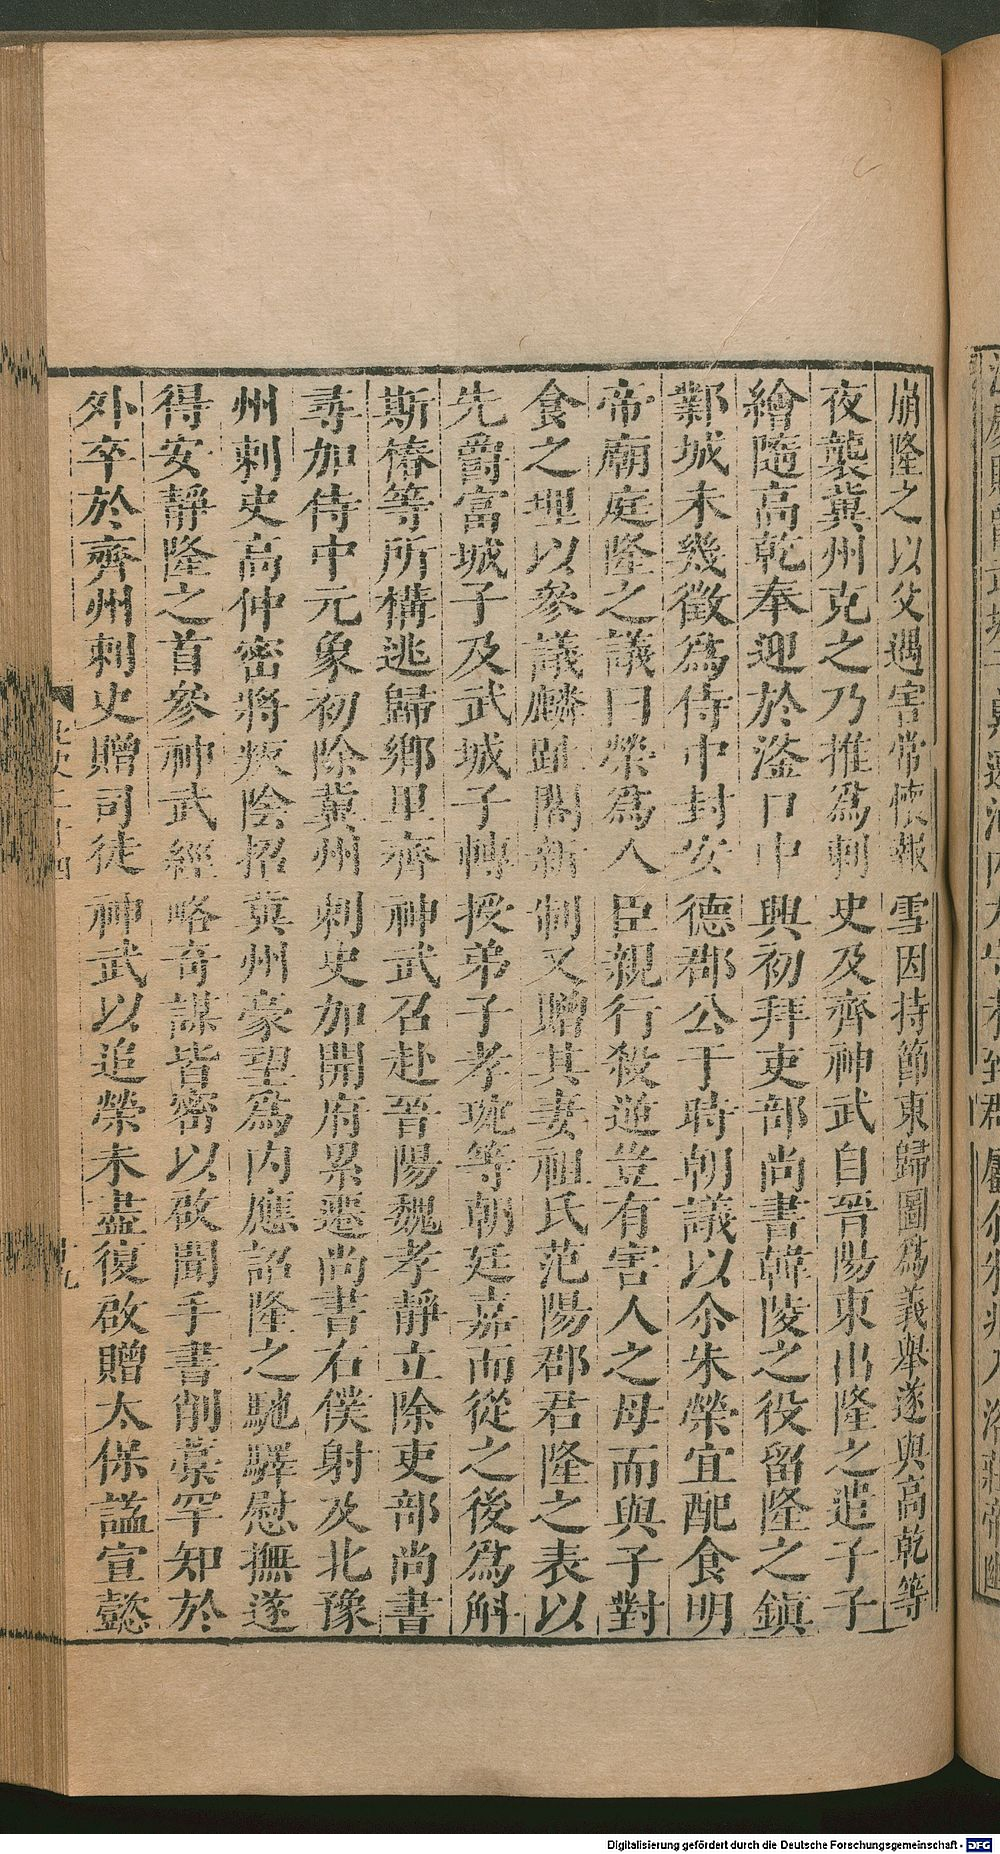 崩隆之以父遇害常懷報雪因持節東歸圖爲義舉遂與高乾等
夜襲冀州克之乃推爲刺史及齊神武自晉陽東出隆之遣子子
繪隨高乾奉迎於滏口中興初拜吏部尚書韓陵之役留隆之鎮
鄴城未幾徵爲侍中封安德郡公于時朝議以尒朱榮宜配食明
帝廟庭隆之議曰榮爲人臣親行殺逆豈有害人之母而與子對
食之理以參議麟趾閣新制又贈其妻祖氏范陽郡君隆之表以
先爵富城子及武城子轉授弟子孝琬等朝廷嘉而從之後爲斛
斯椿等所構逃歸鄉里齊神武召赴晉陽魏孝靜立除吏部尚書
尋加侍中元象初除冀州刺史加開府累遷尚書右僕射及北豫
州刺史高仲密將叛陰招冀州豪望爲內應詔隆之馳驛慰撫遂
得安靜隆之首參神武經略奇謀皆密以啟聞手書削藁罕知於
外卒於齊州刺史贈司徒神武以追榮未盡復啟贈太保謚宣懿
Digitalisierung gefördert durch die Deutsche Forschungsgemeinschaft - DFG